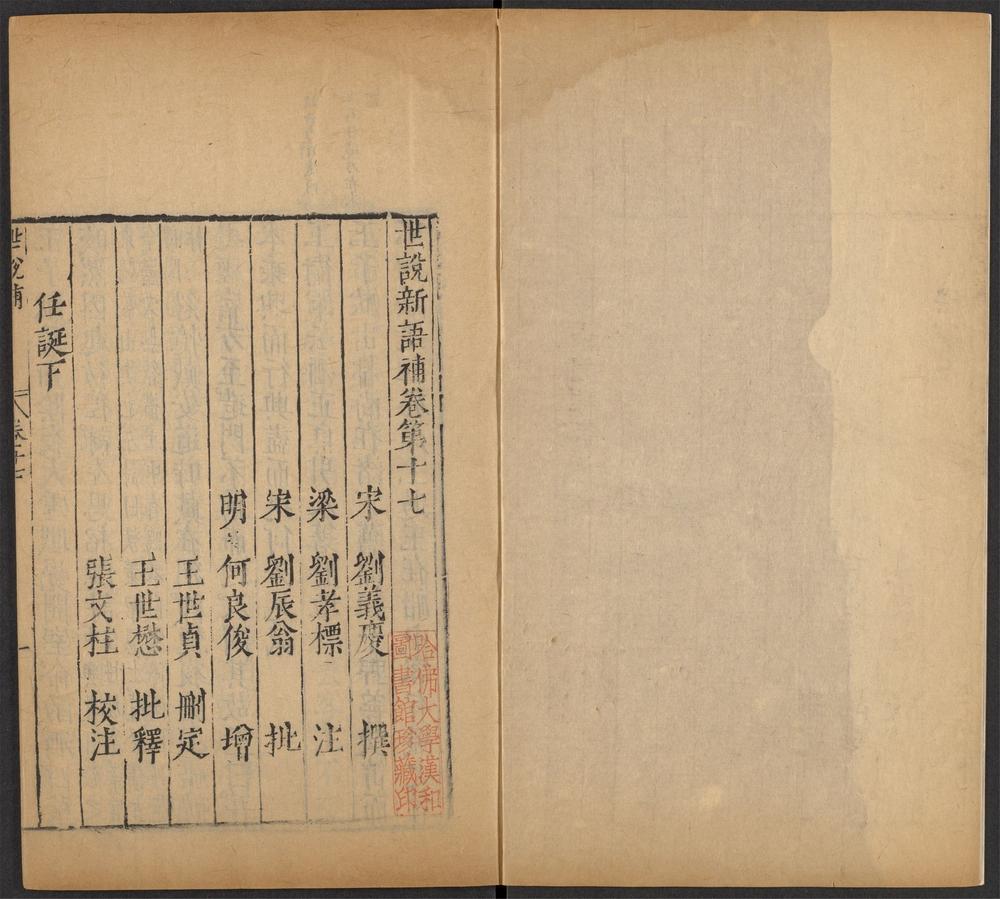 世說新語補卷第十七
宋 劉義慶 撰
梁 劉孝標 注
宋 劉辰翁 批
明 何良俊 增
王世貞 刪定
王世懋 批釋
張文柱 校注
任誕下
世說補 卷十七 一
哈佛大學漢和
圖書館珍藏印